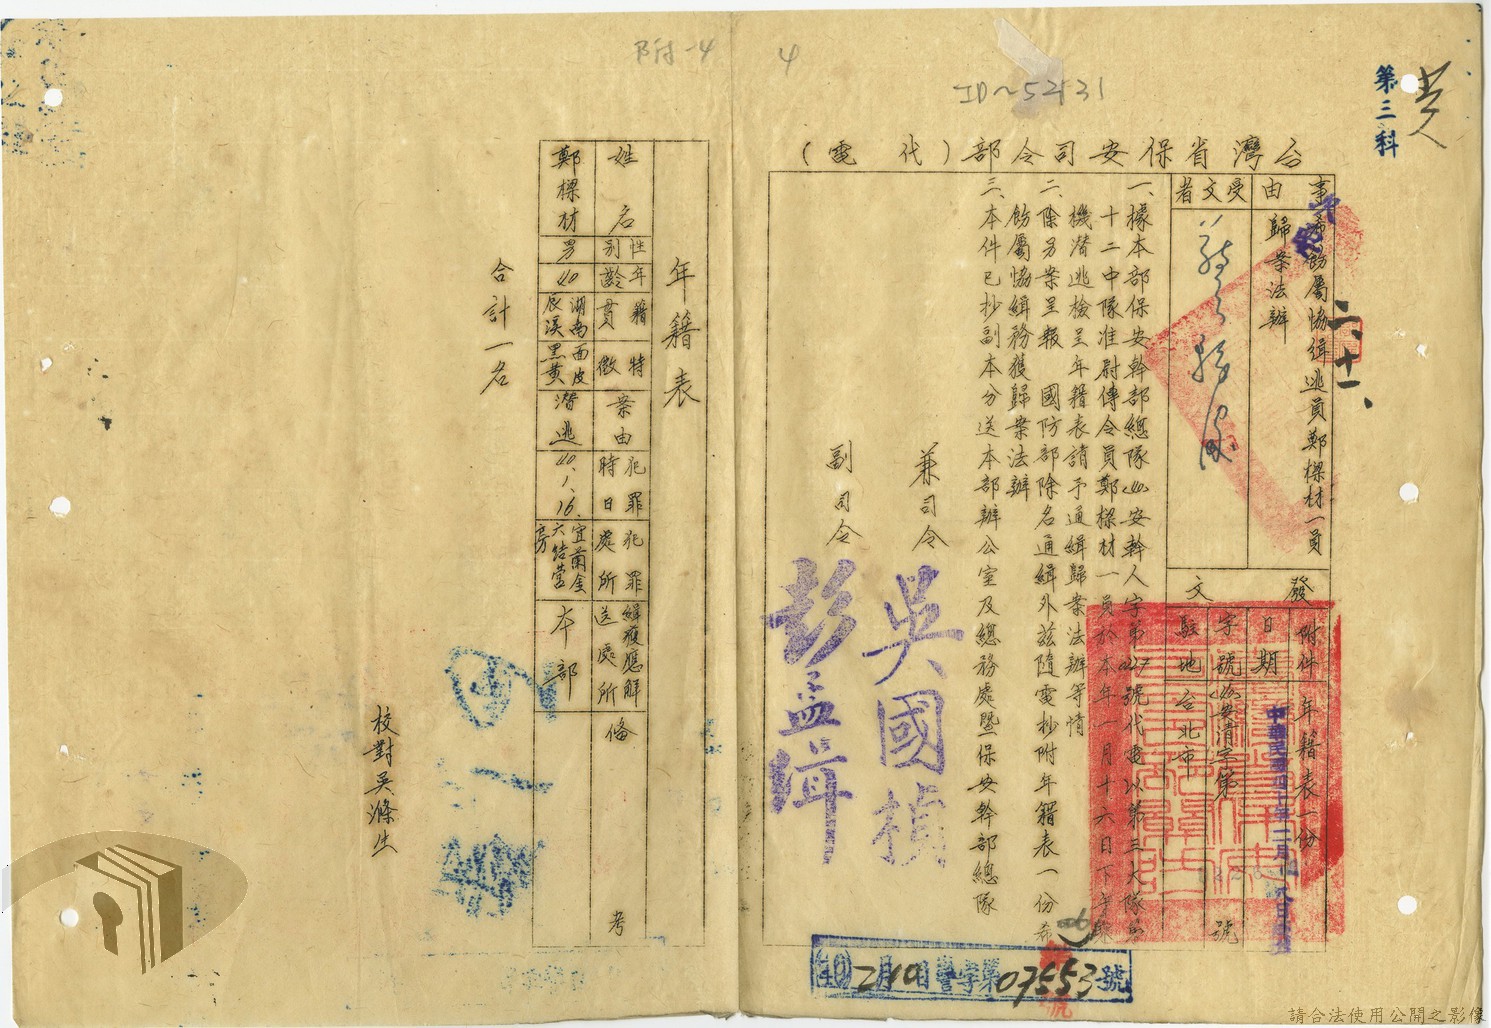 附-4
4
ID~52131
第三科
台灣省保安司令部（代電）
事由
希飭屬協緝逃員鄭樑材一員
歸案法辦
受文者
發文
附件
年籍表一份
日期
中華民國四十年二月
字號
安清字第
號
駐地
台北市
二、十一、
一、據本部保安幹部總隊(40)安幹人字第0227號代電以第三大隊第
十二中隊准尉傳令員鄭樑材一員於本年一月十六日下午乘
機潛逃檢呈年籍表請予通緝歸案法辦等情
二、除另案呈報 國防部除名通緝外茲隨電抄附年籍表一份希
飭屬協緝務獲歸案法辦
三、本件已抄副本分送本部辦公室及總務處暨保安幹部總隊
兼司令 吳國楨
副司令 彭孟緝
(40)2月10日警字第07553號
年籍表
姓名 性別 年齡 籍貫 特徵 案由 犯罪時日 犯罪處所 緝獲應解送處所 備考
鄭樑材 男 40 湖南辰溪 面皮黑黃 潛逃 40.1.16. 宜蘭金六結營房 本部
合計一名
校對吳滌生
請合法使用公開之影像